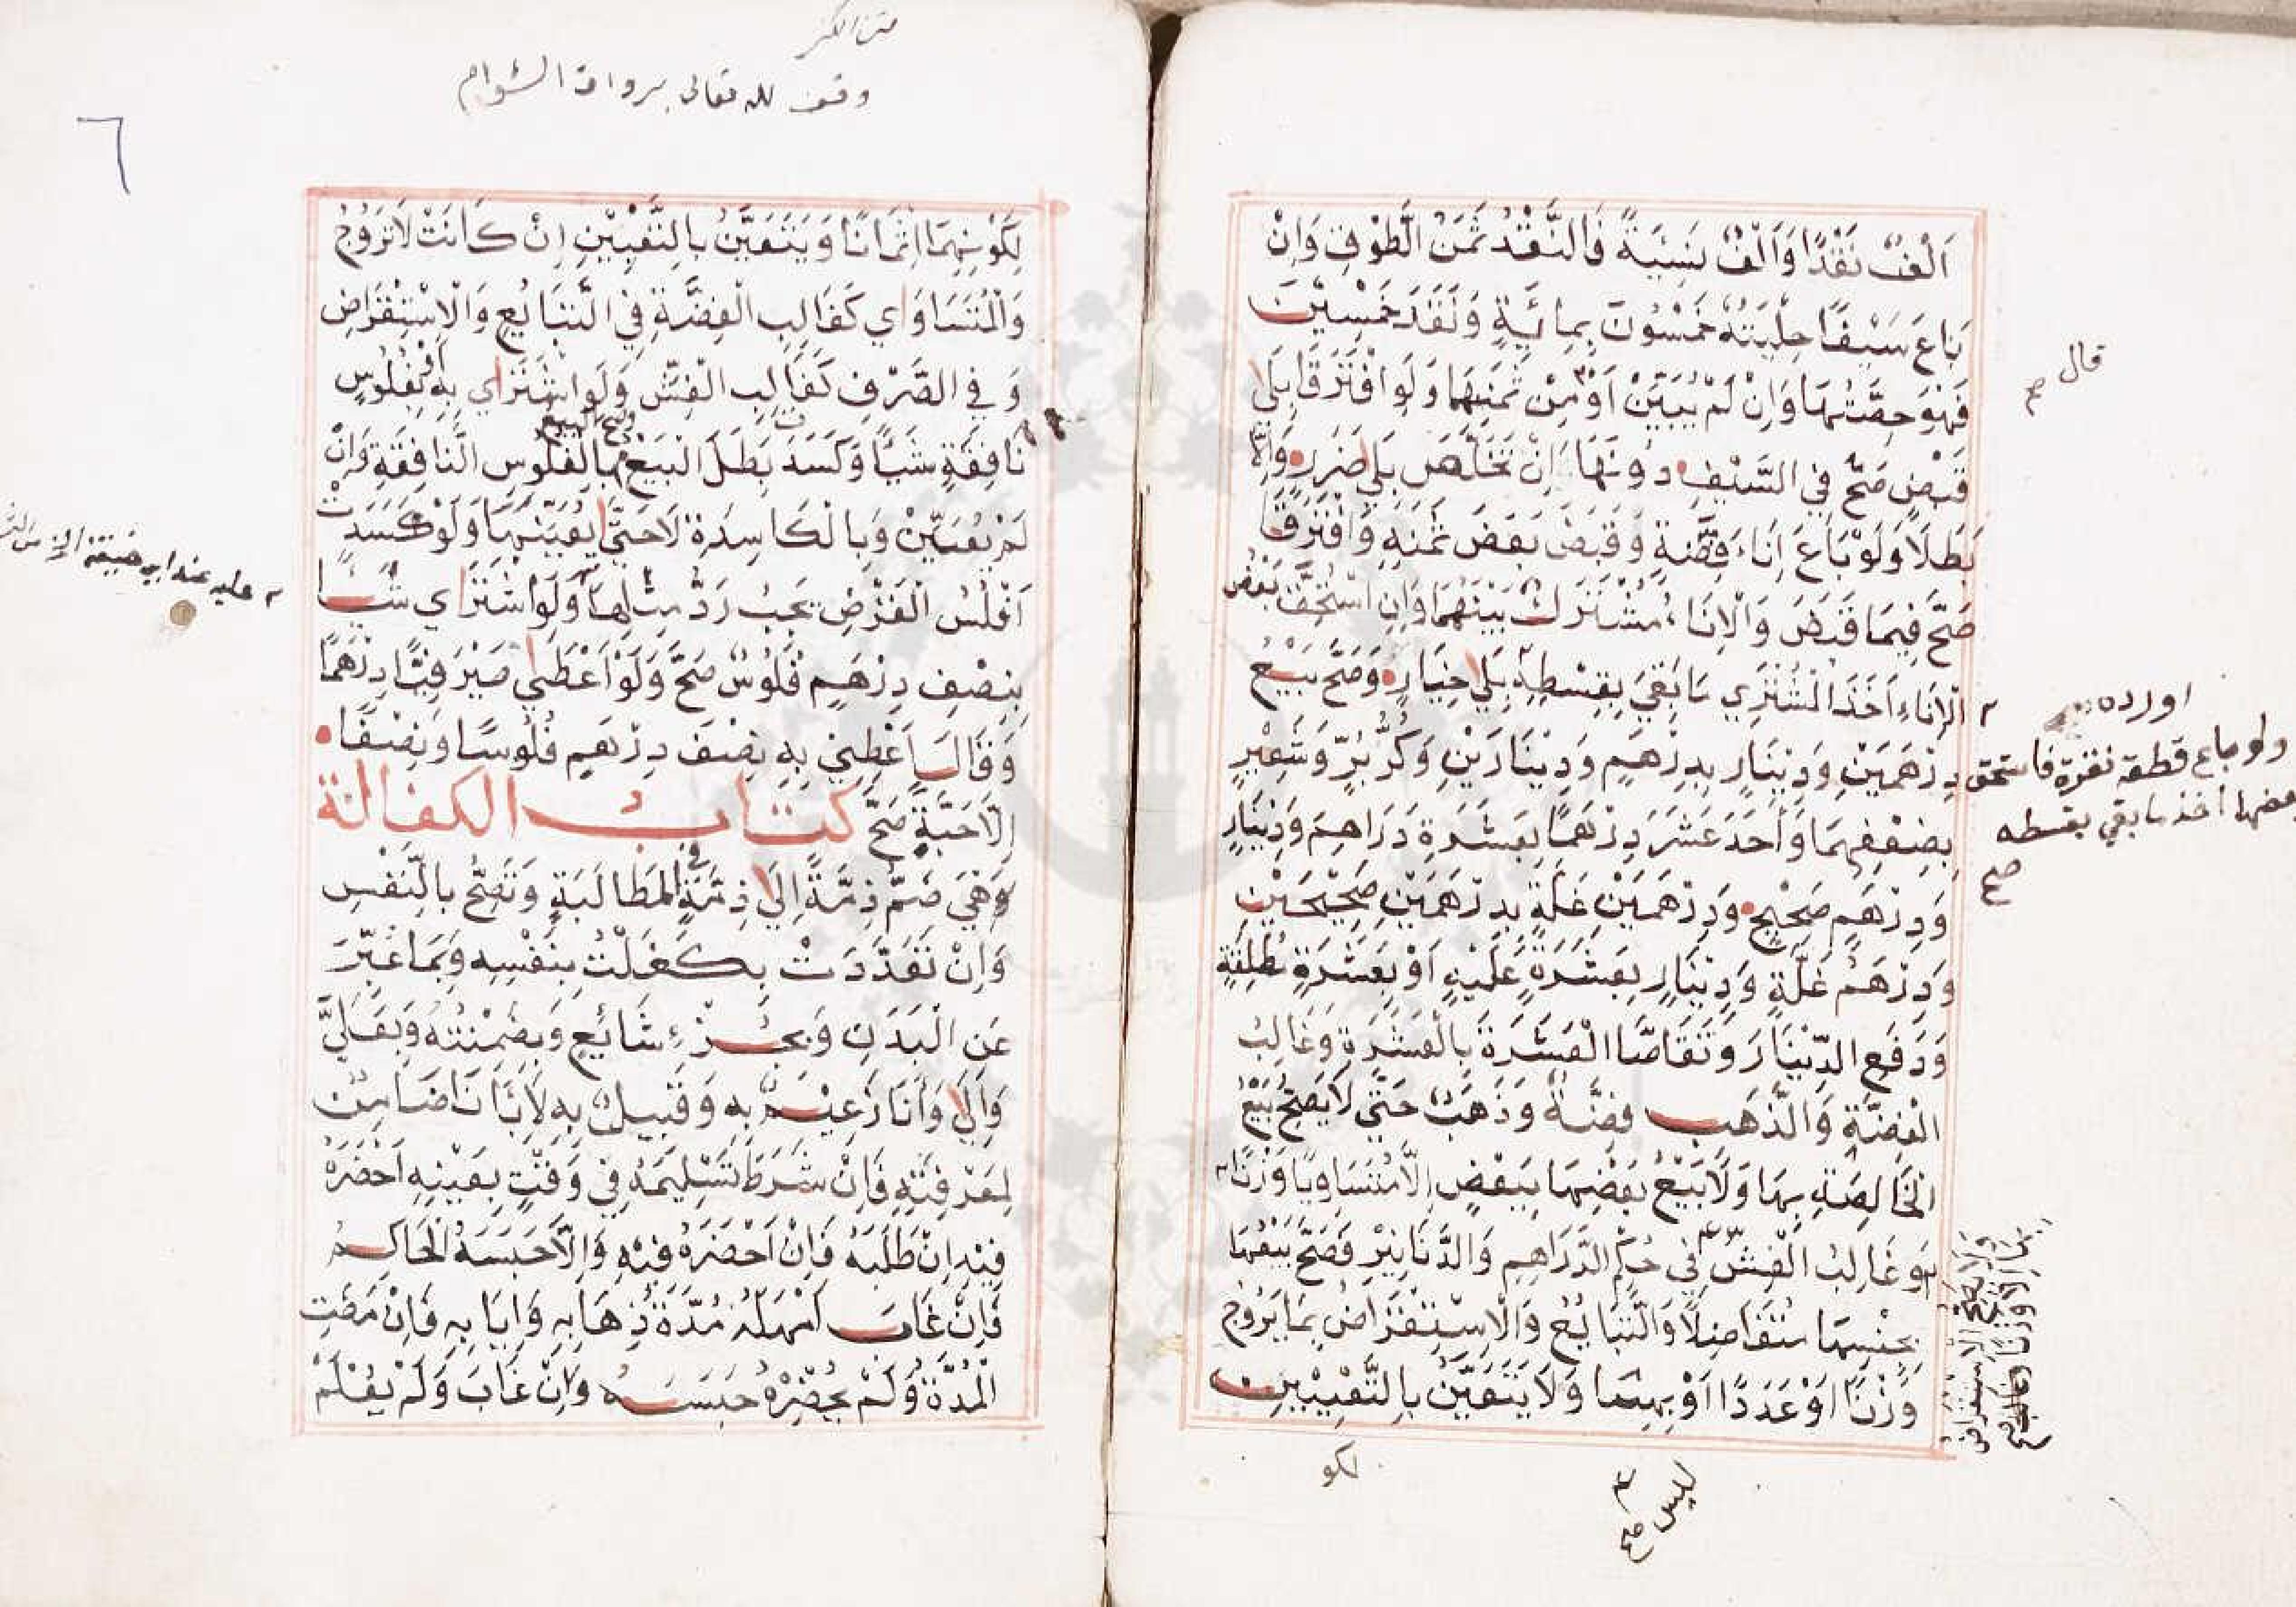 اَلْفٌ نَقْدًا وَاَلْفٌ نَسِيئَةً فَالنَّقْدُ ثَمَنُ الطَّوْقِ وَاِنْ
بَاعَ سَيْفًا حِلْيَتُهُ خَمْسُونَ بِمِائَةٍ وَنَقَدَ خَمْسِيْنَ
فَهُوَ حِصَّتُهَا وَاِنْ لَمْ يُبَيِّنْ اَوْ مِنْ ثَمَنِهِمَا وَلَوِ افْتَرَقَا بِلَا
قَبْضٍ صَحَّ فِي السَّيْفِ دُونَهَا اِنْ تَخَلَّصَ بِلَا ضَرَرٍ وَاِلَّا
بَطَلَا وَلَوْ بَاعَ اِنَاءَ فِضَّةٍ وَقَبَضَ بَعَضَ ثَمَنِهِ وَافْتَرَقَا
صَحَّ فِيمَا قَبَضَ وَالْاِنَاءُ مُشْتَرَكٌ بَيْنَهُمَا وَاِنِ اسْتُحِقَّ بَعْضُ
الْاِنَاءِ اَخَذَ الْمُشْتَرِي مَا بَقِيَ بِقِسْطِهِ بِلَا خِيَارٍ وَصَحَّ بَيْعُ
دِرْهَمَيْنِ وَدِيْنَارٍ بِدِرْهَمٍ وَدِيْنَارَيْنِ وَكُرِّ بُرٍّ وَشَعِيْرٍ
بِضِعْفِهِمَا وَاَحَدَ عَشَرَ دِرْهَمًا بِعَشَرَةِ دَرَاهِمَ وَدِيْنَارٍ
وَدِرْهَمٍ صَحِيْحٍ وَدِرْهَمَيْنِ غَلَّةٍ بِدِرْهَمَيْنِ صَحِيْحَيْنِ
وَدِرْهَمٍ غَلَّةٍ وَدِيْنَارٍ بِعَشَرَةٍ عَلَيْهِ اَوْ بِعَشَرَةٍ مُطْلَقَةٍ
وَدَفَعَ الدِّيْنَارَ وَتَقَاصَّا الْعَشَرَةَ بِالْعَشَرَةِ وَغَالِبُ
الْفِضَّةِ وَالذَّهَبِ فِضَّةٌ وَذَهَبٌ حَتَّى لَا يَصِحَّ بَيْعُ
الْخَالِصَةِ بِهَا وَلَا بَيْعُ بَعْضِهَا بِبَعْضٍ اِلَّا مُتَسَاوِيًا وَزْنًا
وَغَالِبُ الْغِشِّ فِي حُكْمِ الدَّرَاهِمِ وَالدَّنَانِيْرِ فَصَحَّ بَيْعُهَا
بِجِنْسِهَا مُتَفَاضِلًا وَالتَّبَايُعُ وَالْاِسْتِقْرَاضُ بِمَا يَرُوْجُ
وَزْنًا اَوْ عَدَدًا اَوْ بِهِمَا وَلَا يَتَعَيَّنُ بِالتَّعْيِيْنِ
لكو
ليس
صح
قال
صح
اورده
ولو باع قطعة نقرة فاستحق
بعضها اخذ ما بقي بقسطه
صح
متن الكنز
وقف لله تعالى برواق الشوام
٦
لِكَوْنِهِمَا اَثْمَانًا وَيَتَعَيَّنُ بِالتَّعْيِيْنِ اِنْ كَانَتْ لَا تَرُوْجُ
وَالْمُتَسَاوِي كَغَالِبِ الْفِضَّةِ فِي التَّبَايُعِ وَالْاِسْتِقْرَاضِ
وَفِي الصَّرْفِ كَغَالِبِ الْغِشِّ وَلَوِ اشْتَرَى بِهِ اَوْ بِفُلُوْسٍ
نَافِقَةٍ شَيْئًا وَكَسَدَ بَطَلَ الْبَيْعُ وصح البيع بِالْفُلُوْسِ النَّافِقَةِ وَاِنْ
لَمْ يُعَيِّنْ وَبِالْكَاسِدَةِ لَا حَتَّى يُعَيِّنَهَا وَلَوْ كَسَدَتْ
اَفْلُسُ الْقَرْضِ يَجِبُ رَدُّ مِثْلِهَا وَلَوِ اشْتَرَى شَيْئًا
بِنِصْفِ دِرْهَمٍ فُلُوْسٌ صَحَّ وَلَوْ اَعْطَى صَيْرَفِيًّا دِرْهَمًا
وَقَالَ اَعْطِنِي بِهِ نِصْفَ دِرْهَمٍ فُلُوْسًا وَنِصْفًا
اِلَّا حَبَّةٍ صَحَّ كتاب الكفالة
وَهِيَ ضَمُّ ذِمَّةً اِلَى ذِمَّةٍ فِي الْمَطَالَبَةِ وَتَصِحُّ بِالنَّفْسِ
وَاِنْ تَعَدَّدَتْ بِكَفَلْتُ بِنَفْسِهِ وَبِمَا عُبِّرَ
عَنِ الْبَدَنِ وَبِجُزْءٍ شَائِعٍ وَبِضَمِنْتُهُ وَبِعَلَيَّ
وَاِلَيَّ وَاَنَا زَعِيْمٌ بِهِ وَقَبِيلٌ بِهِ لَا بِاَنَا ضَامِنٌ
لِمَعْرِفَتِهِ فَاِنْ شَرَطَ تَسْلِيمَهُ فِي وَقْتٍ بِعَيْنِهِ اَحْضَرَهُ
فِيْهِ اِنْ طَلَبَهُ فَاِنْ اَحْضَرَهُ فِيْهِ وَاِلَّا حَبَسَهُ الْحَاكِمُ
فَاِنْ غَابَ اَمْهَلَهُ مُدَّةَ ذِهَابِهِ وَاِيَابِهِ فَاِنْ مَضَتِ
الْمُدَّةُ وَلَمْ يُحْضِرْهُ حَبَسَهُ وَاِنْ غَابَ وَلَمْ يُعْلَمْ